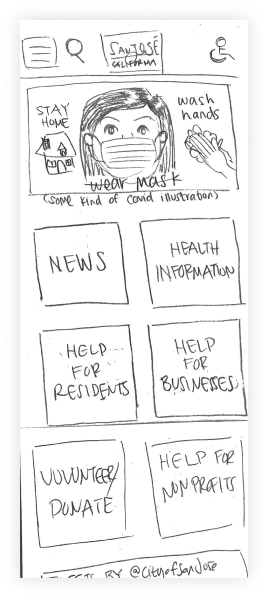 SAN JOSE
CALIFORNIA
STAY
HOME
wash
hands
wear mask
(some kind of covid illustration)
NEWS
HEALTH
INFORMATION
HELP
FOR
RESIDENTS
HELP
FOR
BUSINESSES
VOLUNTEER/
DONATE
HELP FOR
NONPROFITS
TWEETS BY @CityofSanJose